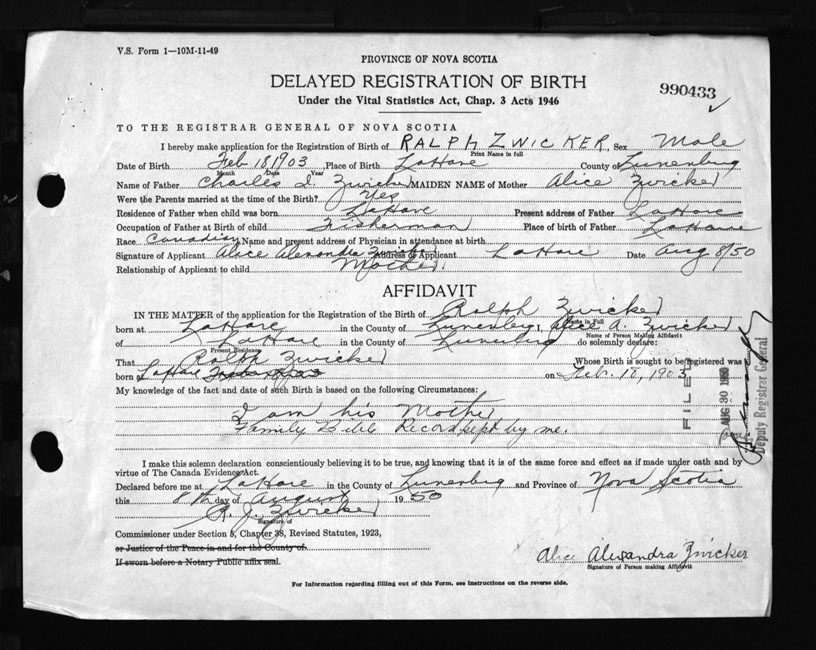 V.S. Form 1—10M-11-49
PROVINCE OF NOVA SCOTIA
DELAYED REGISTRATION OF BIRTH
990433
Under the Vital Statistics Act, Chap. 3 Acts 1946
TO THE REGISTRAR GENERAL OF NOVA SCOTIA
I hereby make application for the Registration of Birth of RALPH ZWICKER, Sex Male
Print Name in full
Date of Birth Feb 18 1903 Place of Birth LaHave County of Lunenburg
Month Date Year
Name of Father Charles I. Zwicker MAIDEN NAME of Mother Alice Zwicker
Were the Parents married at the time of the Birth? Yes
Residence of Father when child was born LaHave Present address of Father LaHave
Occupation of Father at Birth of child Fisherman Place of birth of Father LaHave
Race Canadian Name and present address of Physician in attendance at birth
Signature of Applicant Alice Alexandra Zwicker Address of Applicant LaHave Date Aug 8/50
Relationship of Applicant to child Mother
AFFIDAVIT
IN THE MATTER of the application for the Registration of Birth of Ralph Zwicker
Name in Full
born at LaHave in the County of Lunenburg I, Alice A. Zwicker
Name of Person Making Affidavit
of LaHave in the County of Lunenburg do solemnly declare:
Present Residence
That Ralph Zwicker Whose Birth is sought to be registered was
born at LaHave on Feb. 18, 1903
My knowledge of the fact and date of such Birth is based on the following Circumstances:
I am his Mother
Family Bible Record, kept by me.
FILED
AUG 30 1950
Deputy Registrar General
I make this solemn declaration conscientiously believing it to be true, and knowing that it is of the same force and effect as if made under oath and by
virtue of The Canada Evidence Act.
Declared before me at LaHave in the County of Lunenburg and Province of Nova Scotia
this 8th day of August 1950
R. J. Zwicker
Signature of
Commissioner under Section 5, Chapter 38, Revised Statutes, 1923,
or Justice of the Peace in and for the County of
If sworn before a Notary Public affix seal.
Alice Alexandra Zwicker
Signature of Person making Affidavit
For Information regarding filling out of this Form, see instructions on the reverse side.